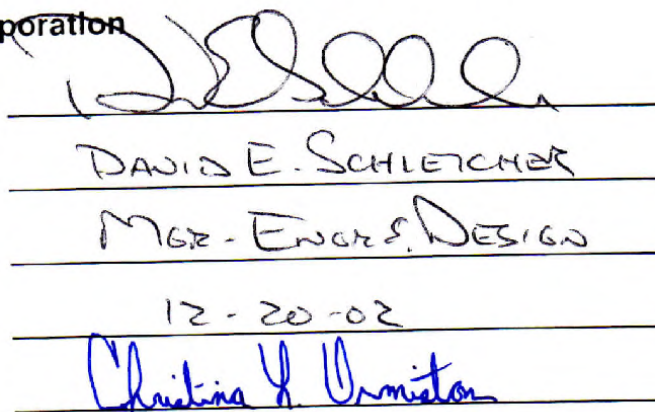 poration
DAVID E. SCHLEICHER
MGR - ENGR & DESIGN
12-20-02
Christina L. Urmiston